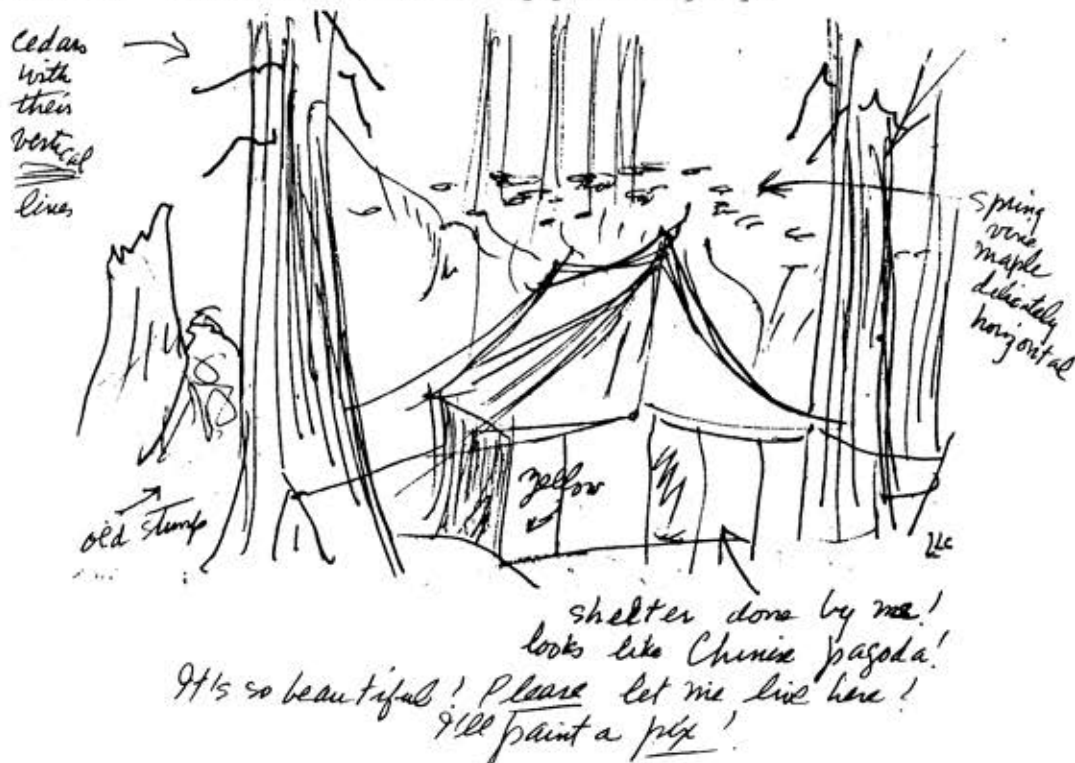 cedars
with
their
vertical
lines
spring
vine
maple
delicately
horizontal
yellow
old stump
LLC
shelter done by me!
looks like Chinese pagoda!
It's so beautiful! Please let me live here!
I'll paint a pix!